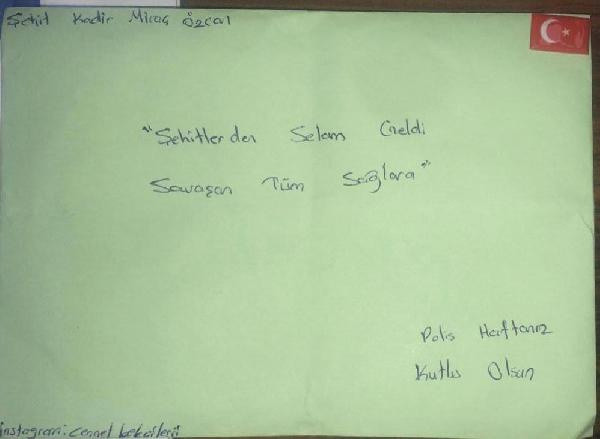 Şehit Kadir Miraç Özcan
"Şehitlerden Selam Geldi
Savaşan Tüm Sağlara"
Polis Haftanız
Kutlu Olsun
instagram: cennet bekcileri